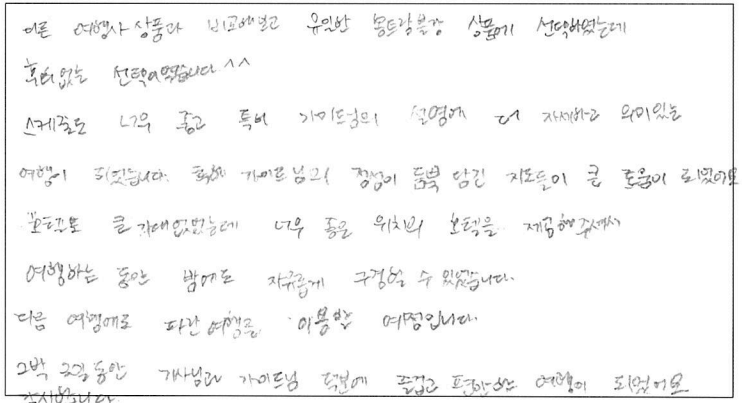 다른 여행사 상품과 비교해보고 유일한 몽트랑블랑 상품에 선택하였는데
후회없는 선택이었습니다 ^^
스케줄도 너무 좋고 특히 가이드님의 설명에 더 자세하고 의미있는
여행이 되었습니다. 특히 가이드님의 정성이 듬뿍 담긴 지도들이 큰 도움이 되었어요
호텔도 큰 기대없었는데 너무 좋은 위치의 호텔을 제공해주셔서
여행하는 동안 밤에도 자유롭게 구경할 수 있었습니다.
다음 여행에도 파란여행을 이용할 예정입니다.
동안 기사님과 가이드님 덕분에 즐겁고 편안한 여행이 되었어요
감사합니다